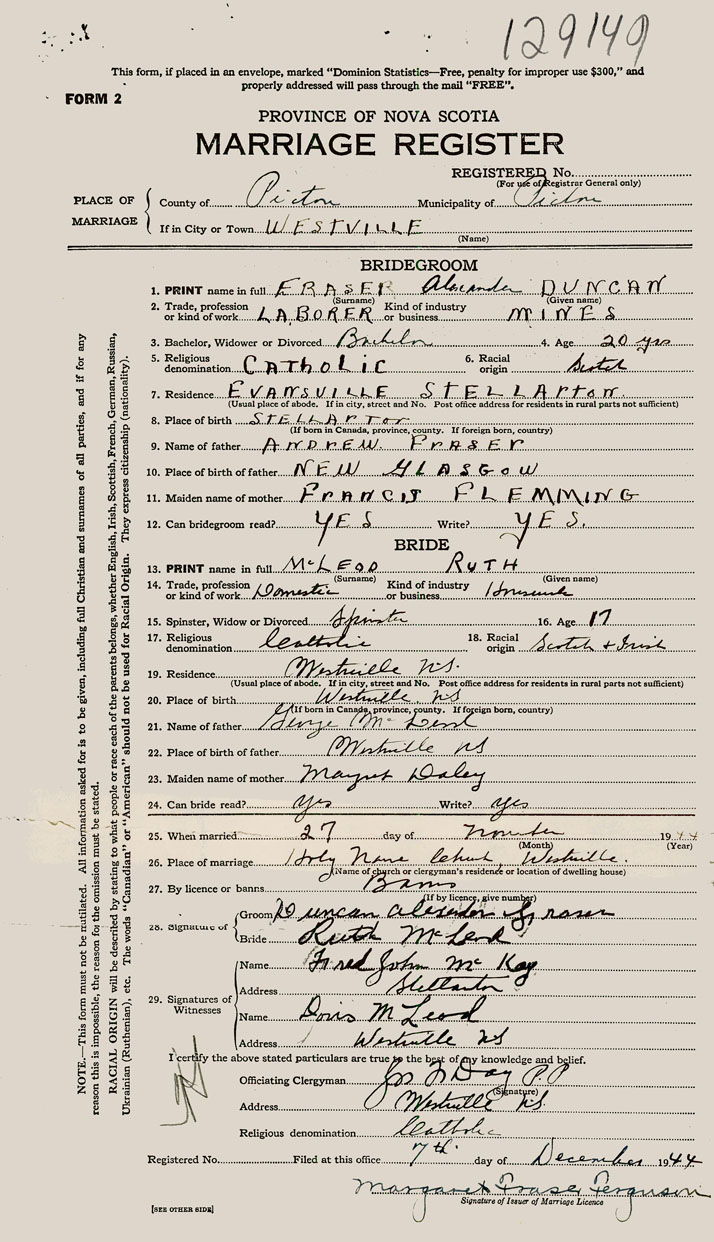 129149
This form, if placed in an envelope, marked "Dominion Statistics—Free, penalty for improper use $300," and
properly addressed will pass through the mail "FREE".
FORM 2
PROVINCE OF NOVA SCOTIA
MARRIAGE REGISTER
REGISTERED No.
(For use of Registrar General only)
PLACE OF MARRIAGE
County of Pictou Municipality of Pictou
If in City or Town WESTVILLE
(Name)
BRIDEGROOM
1. PRINT name in full FRASER Alexander DUNCAN
(Surname) (Given name)
2. Trade, profession or kind of work LABORER Kind of industry or business MINES
3. Bachelor, Widower or Divorced Bachelor 4. Age 20 yrs
5. Religious denomination CATHOLIC 6. Racial origin Scotch
7. Residence EVANSVILLE STELLARTON.
(Usual place of abode. If in city, street and No. Post office address for residents in rural parts not sufficient)
8. Place of birth STELLARTON
(If born in Canada, province, county. If foreign born, country)
9. Name of father ANDREW. FRASER
10. Place of birth of father NEW GLASGOW
11. Maiden name of mother FRANCIS FLEMMING
12. Can bridegroom read? YES Write? YES.
BRIDE
13. PRINT name in full McLEOD RUTH
(Surname) (Given name)
14. Trade, profession or kind of work Domestic Kind of industry or business Housework
15. Spinster, Widow or Divorced Spinster 16. Age 17
17. Religious denomination Catholic 18. Racial origin Scotch & Irish
19. Residence Westville N.S.
(Usual place of abode. If in city, street and No. Post office address for residents in rural parts not sufficient)
20. Place of birth Westville NS
(If born in Canada, province, county. If foreign born, country)
21. Name of father George McLeod
22. Place of birth of father Westville NS
23. Maiden name of mother Margret Daley
24. Can bride read? yes Write? yes
25. When married 27 day of November 1944
(Month) (Year)
26. Place of marriage Holy Name Church, Westville.
(Name of church or clergyman's residence or location of dwelling house)
27. By licence or banns Banns
(If by licence, give number)
28. Signature of
Groom Duncan Alexander Fraser
Bride Ruth McLeod
29. Signatures of Witnesses
Name Fred John McKay
Address Stellarton
Name Doris McLeod
Address Westville NS
I certify the above stated particulars are true to the best of my knowledge and belief.
Officiating Clergyman Day P.P.
(Signature)
Address Westville NS
Religious denomination Catholic
Registered No. Filed at this office 7th day of December 1944
Margaret Fraser Ferguson
Signature of Issuer of Marriage Licence
[SEE OTHER SIDE]
NOTE.—This form must not be mutilated. All information asked for is to be given, including full Christian and surnames of all parties, and if for any
reason this is impossible, the reason for the omission must be stated.
RACIAL ORIGIN will be described by stating to what people or race each of the parents belongs, whether English, Irish, Scottish, French, German, Russian,
Ukrainian (Ruthenian), etc. The words "Canadian" or "American" should not be used for Racial Origin. They express citizenship (nationality).